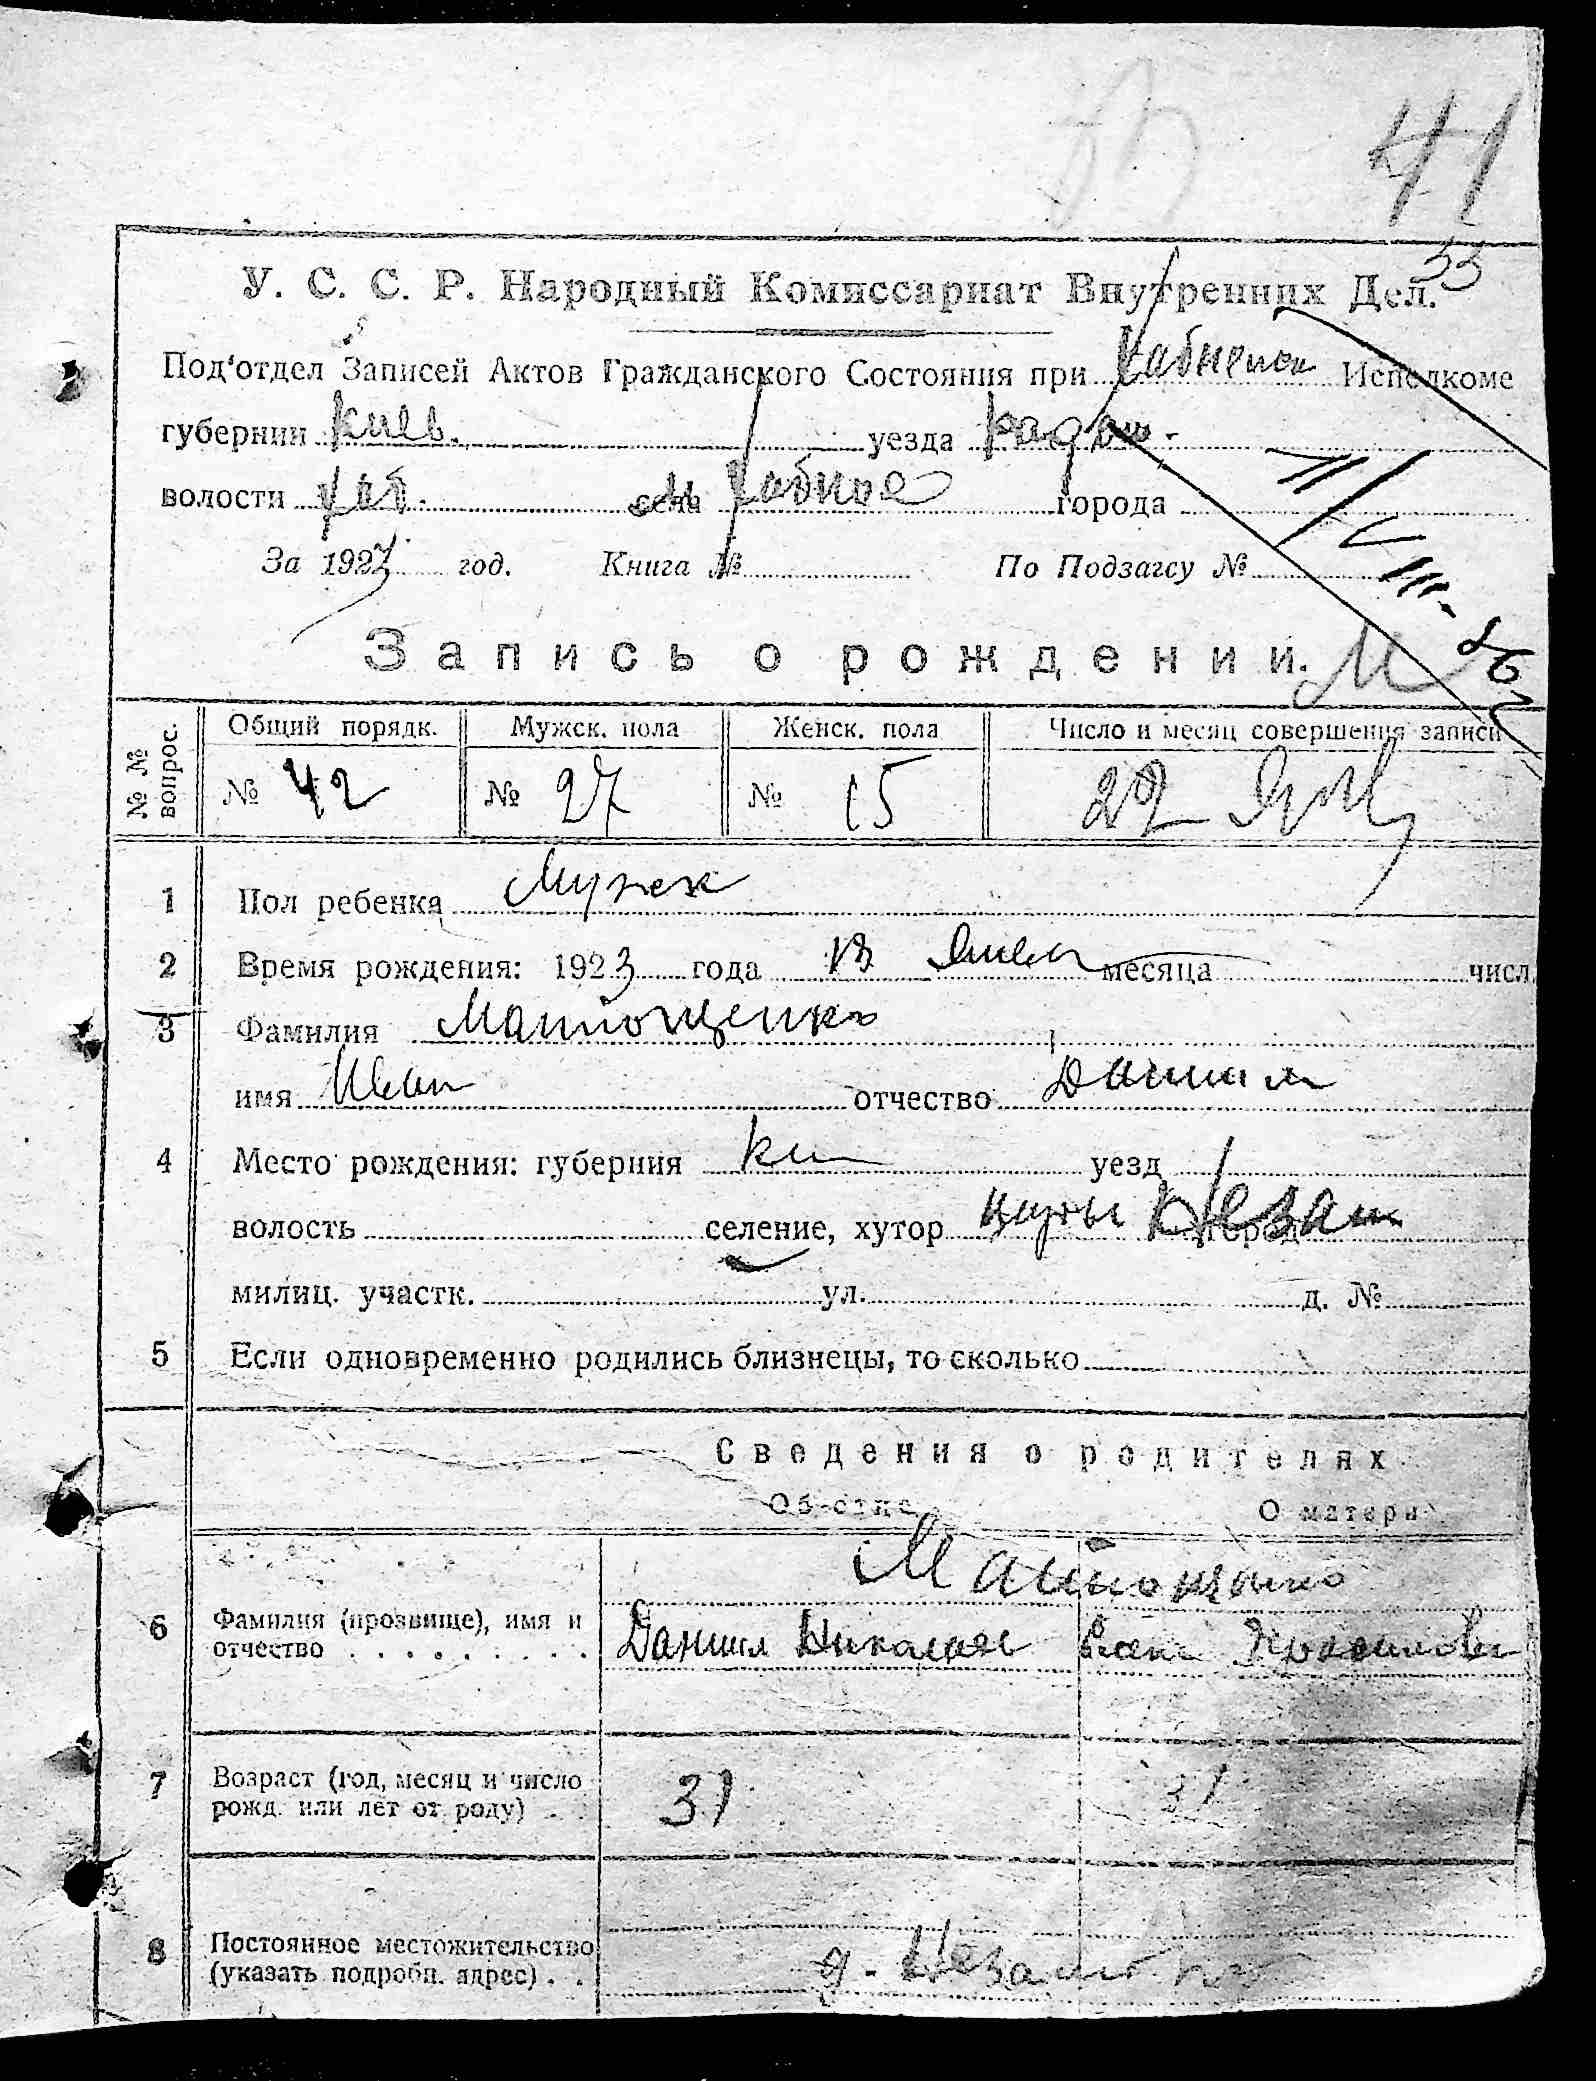 41
33
У. С. С. Р. Народный Комиссариат Внутренних Дел.
Под'отдел Записей Актов Гражданского Состояния при Хабненск Исполкоме
губернии Киев. уезда Радом.
волости Хаб. села Хабное города
За 1923 год. Книга № По Подзагсу №
11/VIII-
Запись о рождении.
№№ вопрос. Общий порядк. Мужск. пола Женск. пола Число и месяц совершения записи
№ 42 № 27 № 15 22 Янв
1 Пол ребенка Мужск
2 Время рождения: 1923 года 13 Январ месяца числ
3 Фамилия Матющенко
имя Иван отчество Даниил
4 Место рождения: губерния Ки уезд
волость селение, хутор город
милиц. участк. ул. д. №
5 Если одновременно родились близнецы, то сколько
Сведения о родителях
Об отце О матери
Матющенко
6 Фамилия (прозвище), имя и отчество Даниил Николаев
7 Возраст (год, месяц и число рожд. или лет от роду) 31 31
8 Постоянное местожительство (указать подробн. адрес) д.